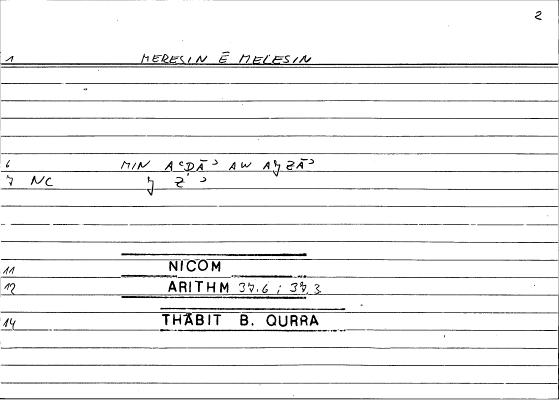 2
1 MERESIN Ē MELESIN
6 MIN AʿDĀʾ AW AǦZĀʾ
7 NC Ǧ Z ʾ
11 NICOM
12 ARITHM 37.6 ; 37.3
14 THĀBIT B. QURRA